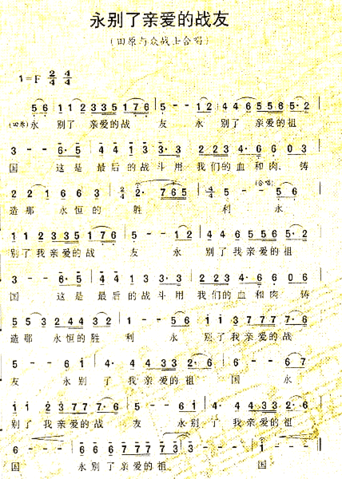 永别了亲爱的战友
(田原与众战士合唱)
1=F 2/4 4/4
5 6 | 1 1 2 3 3 5 1 7 6 | 5 - - 1 2 | 2 4 4 6 5 5 6 5· 2
永 别了 亲爱的战 友 永 别了 亲爱的祖
3 - - 6· 5 | 4 4 1 3 1 3· 1 | 2 2 3 4· 6 6 0 6
国 这是 最后的战斗用 我们的血和肉、铸
2 2 1 6 6 3 | 2· 7 6 5 | 5 - - 1 2
(合唱)
造那 永恒的 胜 利 永
1 1 2 3 3 5 1 7 6 | 5 - - 1 2 | 2 4 4 6 5 5 6 5· 2
别了我亲爱的战 友 永 别了我亲爱的祖
3 - - 6· 5 | 4 4 1 3 1 3· 1 | 2 2 3 4· 6 6 0 6
国 这是 最后的战斗用 我们的血和肉 铸
5 5 3 2 4 4 3 2 | 1 - - 5 6 | 1 1 3 7 7 7 7· 6
造那 永恒的胜 利 永 别了我亲爱的战
5 - - 6 1 | 4· 4 4 3 2 3· 1 | 6 - - 6 7
友 永 别了 我亲爱的祖 国 永
1 1 2 3 7 7 7· 6 | 5 - - 6 1 | 4· 4 4 3 2 3· 6
别了 我亲爱的战 友 永 别了我亲爱的祖
6 - - 6 | 6 7 7 7 7 3 | 3 - - | 1 - - | 1 - - 0
国 永别了亲爱的祖 国